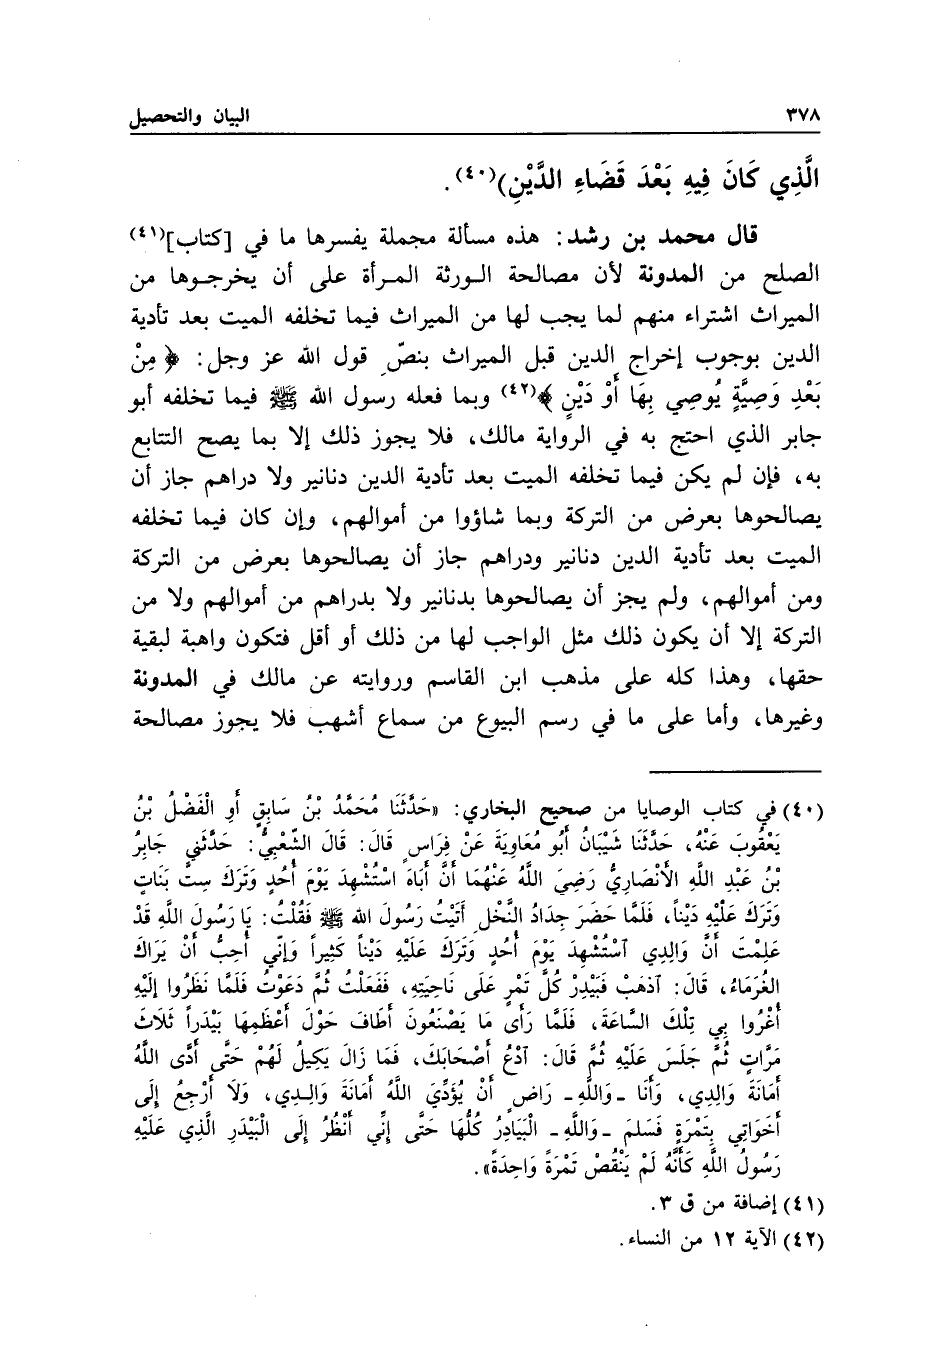 ٣٧٨ البيان والتحصيل
الَّذِي كَانَ فِيهِ بَعْدَ قَضَاءِ الدَّيْنِ)(٤٠).
قال محمد بن رشد: هذه مسألة مجملة يفسرها ما في [كتاب](٤١)
الصلح من المدونة لأن مصالحة الورثة المرأة على أن يخرجوها من
الميراث اشتراء منهم لما يجب لها من الميراث فيما تخلفه الميت بعد تأدية
الدين بوجوب إخراج الدين قبل الميراث بنصّ قول الله عز وجل: ﴿مِنْ
بَعْدِ وَصِيَّةٍ يُوصِي بِهَا أَوْ دَيْنٍ﴾(٤٢) وبما فعله رسول الله ﷺ فيما تخلفه أبو
جابر الذي احتج به في الرواية مالك، فلا يجوز ذلك إلا بما يصح التتابع
به، فإن لم يكن فيما تخلفه الميت بعد تأدية الدين دنانير ولا دراهم جاز أن
يصالحوها بعرض من التركة وبما شاؤوا من أموالهم، وإن كان فيما تخلفه
الميت بعد تأدية الدين دنانير ودراهم جاز أن يصالحوها بعرض من التركة
ومن أموالهم، ولم يجز أن يصالحوها بدنانير ولا بدراهم من أموالهم ولا من
التركة إلا أن يكون ذلك مثل الواجب لها من ذلك أو أقل فتكون واهبة لبقية
حقها، وهذا كله على مذهب ابن القاسم وروايته عن مالك في المدونة
وغيرها، وأما على ما في رسم البيوع من سماع أشهب فلا يجوز مصالحة
(٤٠) في كتاب الوصايا من صحيح البخاري: «حَدَّثَنَا مُحَمَّدُ بْنُ سَابِقٍ أَوِ الْفَضْلُ بْنُ
يَعْقُوبَ عَنْهُ، حَدَّثَنَا شَيْبَانُ أَبُو مُعَاوِيَةَ عَنْ فِرَاسٍ قَالَ: قَالَ الشَّعْبِيُّ: حَدَّثَنِي جَابِرُ
بْنُ عَبْدِ اللَّهِ الأَنْصَارِيُّ رَضِيَ اللَّهُ عَنْهُمَا أَنَّ أَبَاهُ اسْتُشْهِدَ يَوْمَ أُحُدٍ وَتَرَكَ سِتَّ بَنَاتٍ
وَتَرَكَ عَلَيْهِ دَيْناً، فَلَمَّا حَضَرَ جِدَادُ النَّخْلِ أَتَيْتُ رَسُولَ الله ﷺ فَقُلْتُ: يَا رَسُولَ اللَّهِ قَدْ
عَلِمْتَ أَنَّ وَالِدِي آسْتُشْهِدَ يَوْمَ أُحُدٍ وَتَرَكَ عَلَيْهِ دَيْناً كَثِيراً وَإِنِّي أُحِبُّ أَنْ يَرَاكَ
الْغُرَمَاءُ، قَالَ: آذْهَبْ فَبَيْدِرْ كُلَّ تَمْرٍ عَلَى نَاحِيَتِهِ، فَفَعَلْتُ ثُمَّ دَعَوْتُ فَلَمَّا نَظَرُوا إِلَيْهِ
أُغْرُوا بِي تِلْكَ السَّاعَةَ، فَلَمَّا رَأَى مَا يَصْنَعُونَ أَطَافَ حَوْلَ أَعْظَمِهَا بَيْدَراً ثَلَاثَ
مَرَّاتٍ ثُمَّ جَلَسَ عَلَيْهِ ثُمَّ قَالَ: آدْعُ أَصْحَابَكَ، فَمَا زَالَ يَكِيلُ لَهُمْ حَتَّى أَدَّى اللَّهُ
أَمَانَةَ وَالِدِي، وَأَنَا ـ وَاللَّهِ ـ رَاضٍ أَنْ يُؤَدِّيَ اللَّهُ أَمَانَةَ وَالِدِي، وَلَا أَرْجِعُ إِلَى
أَخَوَاتِي بِتَمْرَةٍ فَسَلِمَ ـ وَاللَّهِ ـ الْبَيَادِرُ كُلُّهَا حَتَّى إِنِّي أَنْظُرُ إِلَى الْبَيْدَرِ الَّذِي عَلَيْهِ
رَسُولُ اللَّهِ كَأَنَّهُ لَمْ يَنْقُصْ تَمْرَةً وَاحِدَةً».
(٤١) إضافة من ق ٣.
(٤٢) الآية ١٢ من النساء.